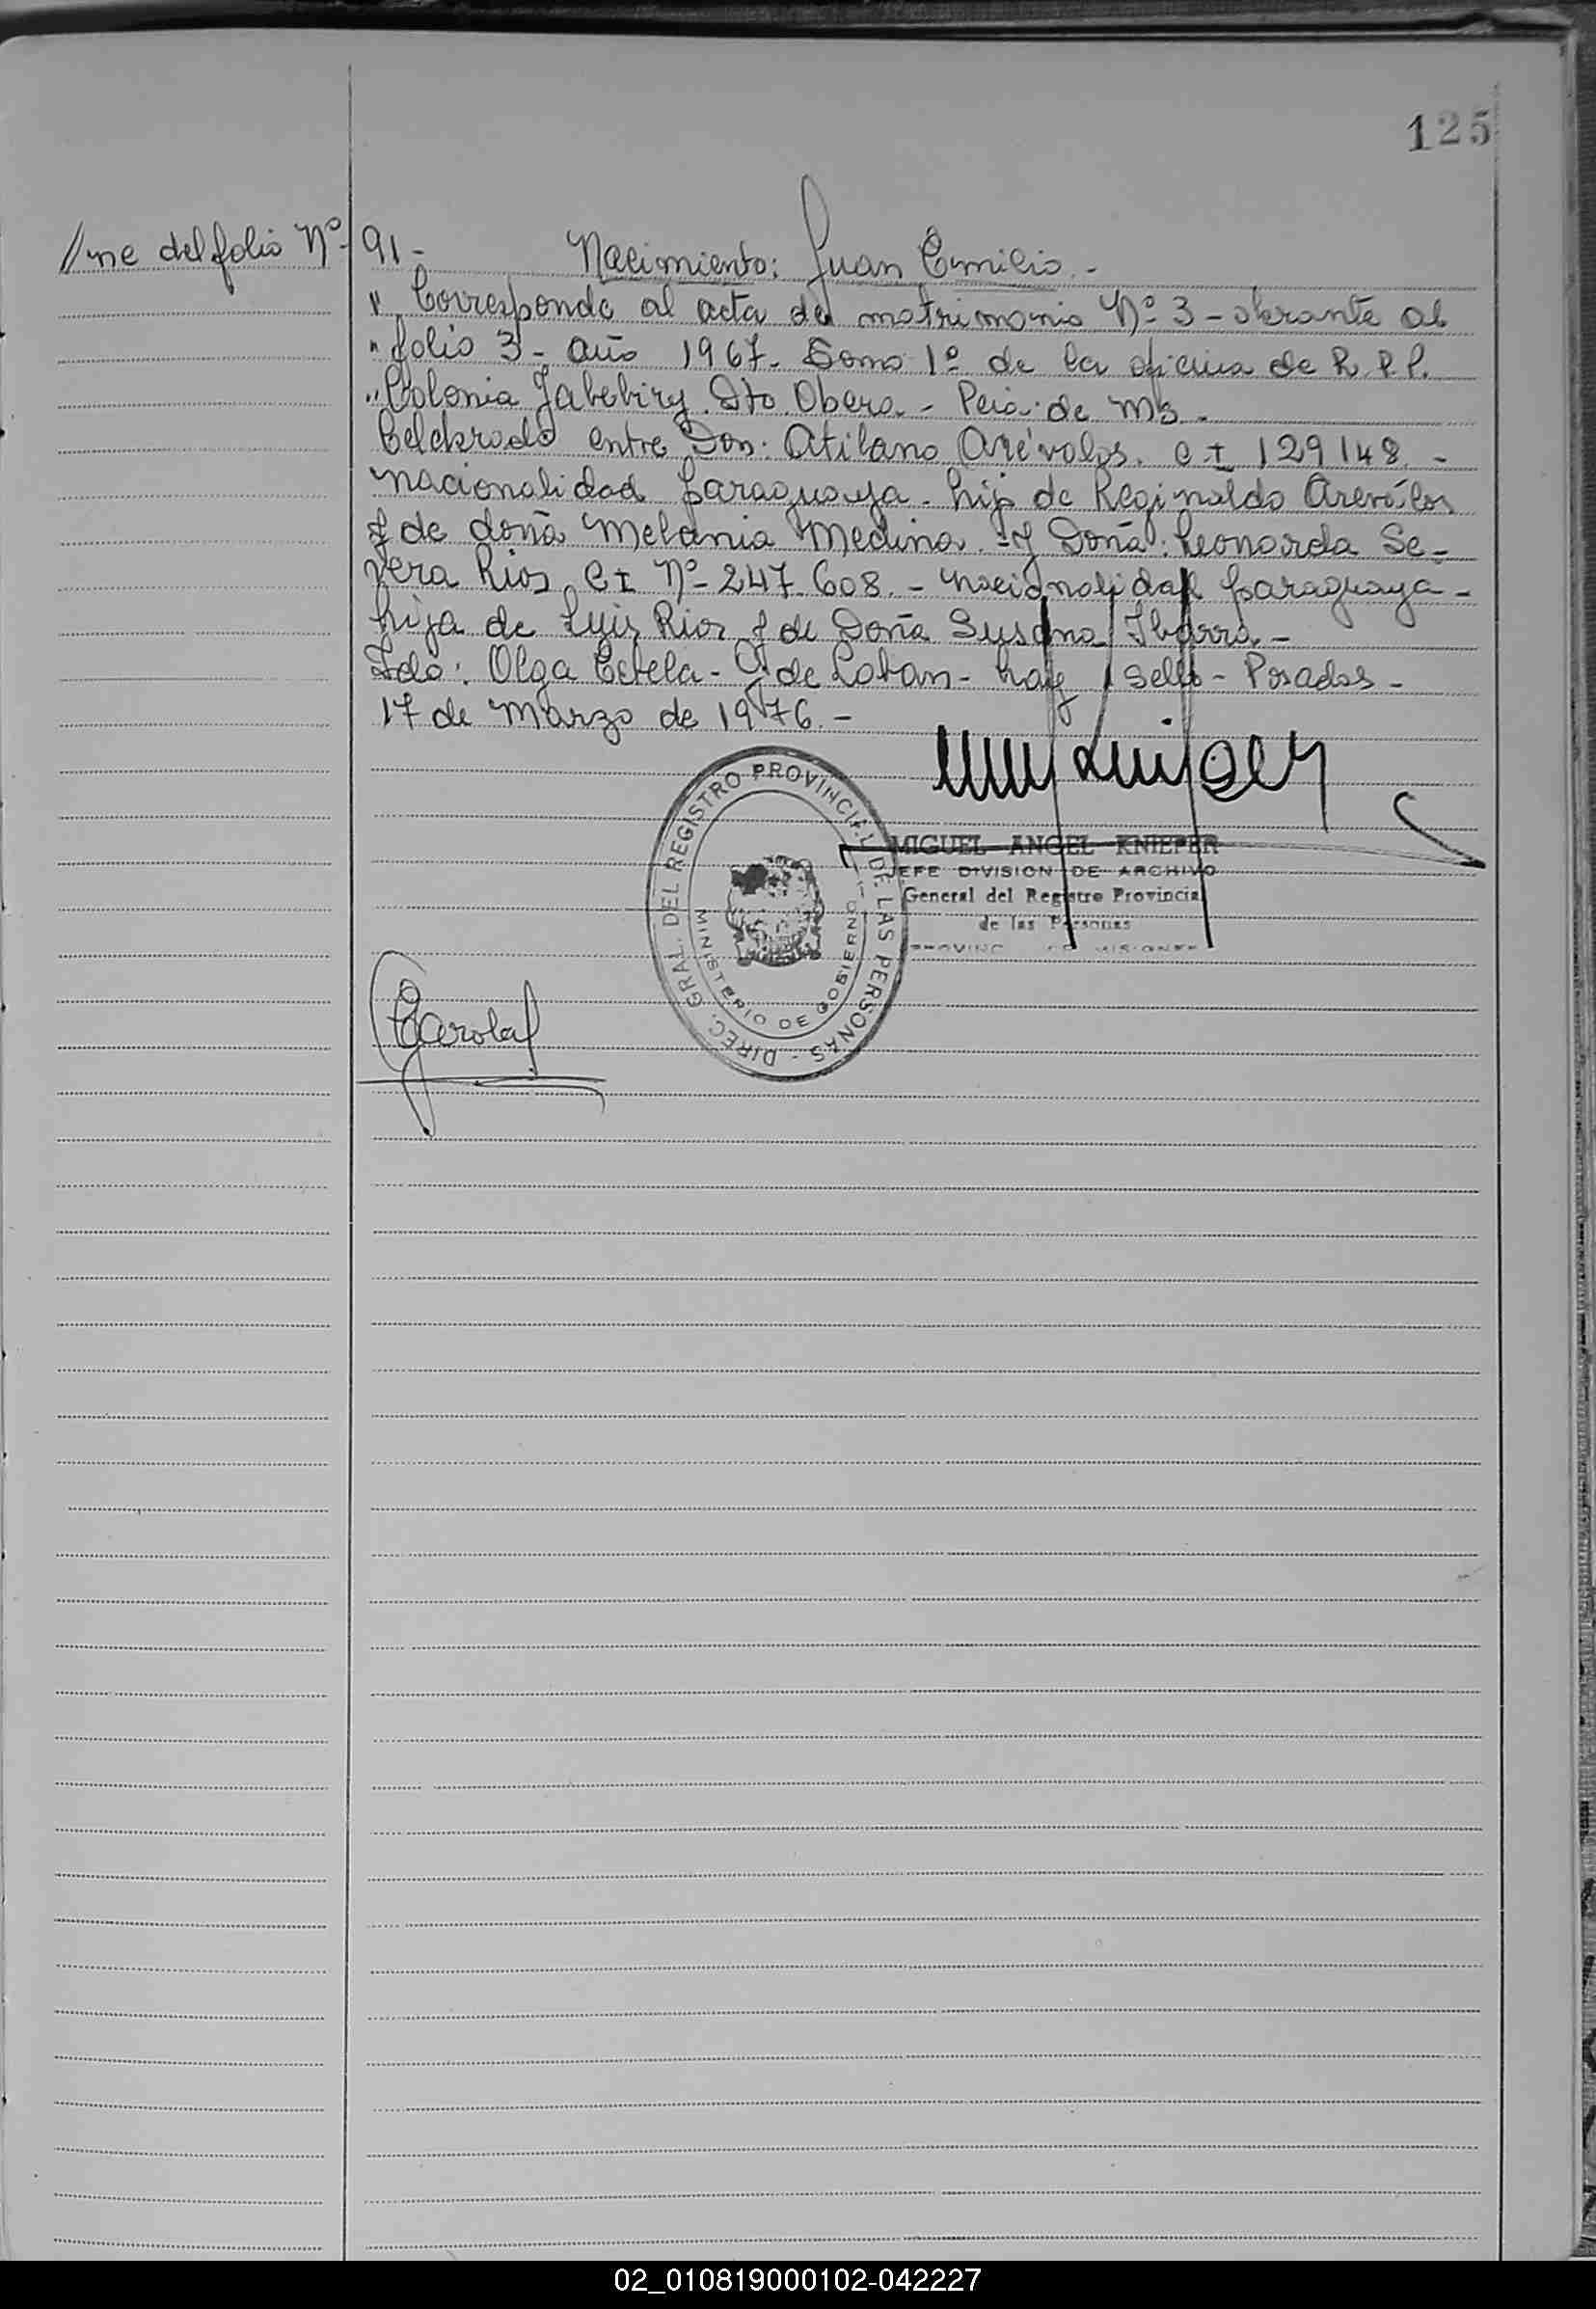 125
//ne del folio Nº 91 -
Nacimiento: Juan Emilio. -
" Corresponde al acta de matrimonio Nº 3 - obrante al
" folio 3 - año 1967. Tomo 1º de la oficina de R. P. P.
" Colonia Jabebiry. Dto. Obera. - Pcia. de Ms.
Celebrado entre Don: Atilano Arévalos. C I 129148. -
nacionalidad paraguaya - hijo de Reginaldo Arevalos
y de doña Melania Medina. - y Doña: Leonarda Se-
vera Rios. C I Nº - 247.608. - nacionalidad paraguaya -
hija de Luis Rios y de Doña Susana Ibarra -
Fdo: Olga Estela - G. de Loban - hay 1 sello - Posadas -
17 de Marzo de 1976. -
MIGUEL ANGEL KNIEPER
JEFE DIVISION DE ARCHIVO
General del Registro Provincial
de las Personas
PROVINC DE MISIONES
DIREC. GRAL. DEL REGISTRO PROVINCIAL DE LAS PERSONAS -
MINISTERIO DE GOBIERNO
02_010819000102-042227